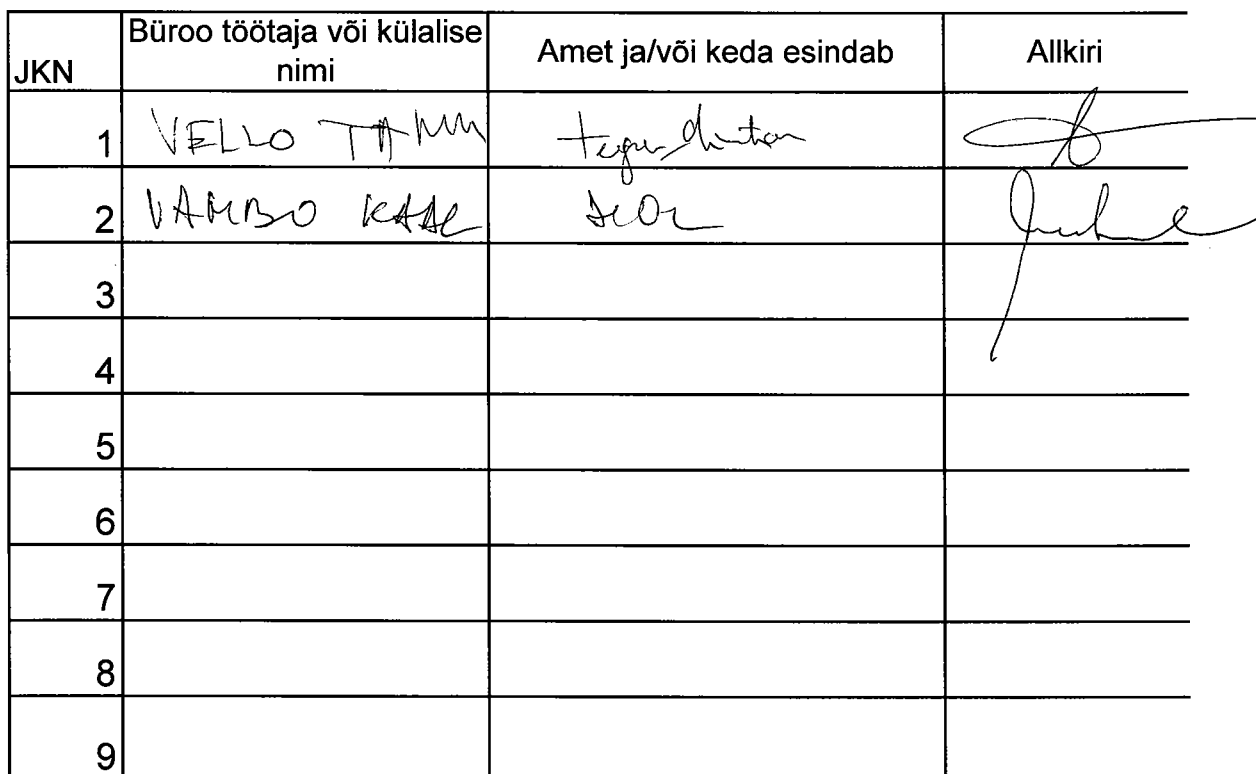 JKN Büroo töötaja või külalise nimi Amet ja/või keda esindab Allkiri
1 VELLO TAMM
2 VAMBO KAAL
3
4
5
6
7
8
9